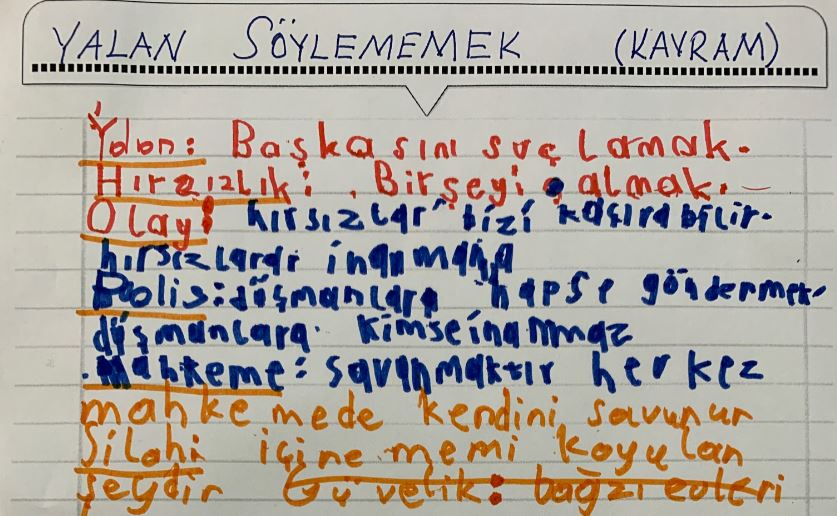 YALAN SÖYLEMEMEK (KAVRAM)
Yalan: Başkasını suçlamak.
Hırzızlık: Birşeyi almak.
Olay: hırsızlar bizi kaçırabilir.
hırsızlara inanmama
Polis: düşmanlara hapse göndermek
düşmanlara. kimse inanmaz
.Mahkeme: savunmaktır herkez
mahkemede kendini savunur
Silahi içine memi koyulan
şeydir Güvelik: bağzı evleri